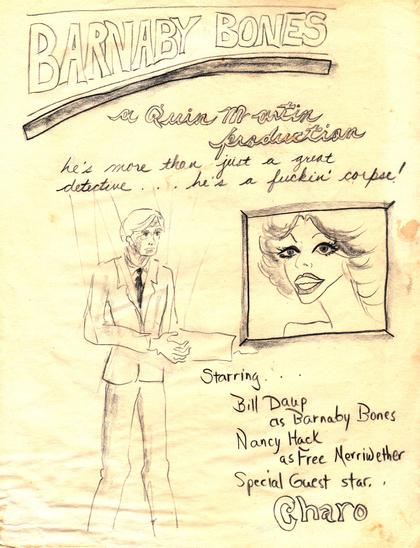 BARNABY BONES
a Quin Martin
production
he's more than just a great
detective.... he's a fuckin' corpse!
Starring...
Bill Daup
as Barnaby Bones
Nancy Hack
as Free Merriwether
Special Guest star..
Charo